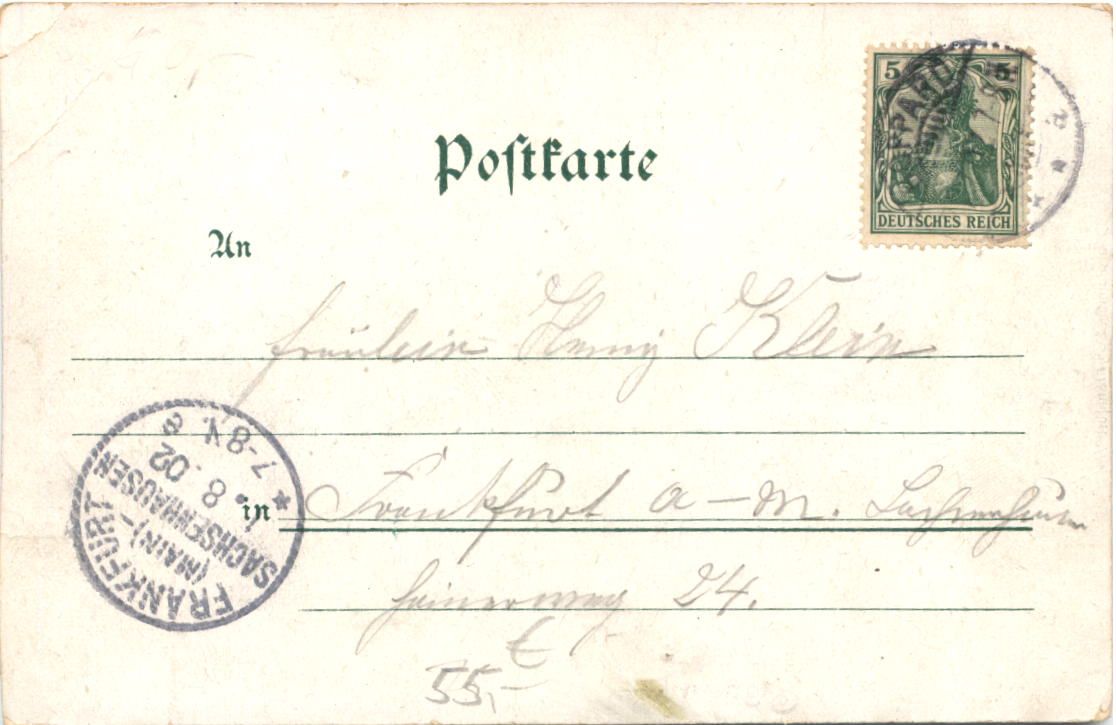 5 5
DEUTSCHES REICH
BOPPARD
Postkarte
An
Fräulein Klein
in Frankfurt a-M. Sachsenhausen
Hainerweg 24.
FRANKFURT
(MAIN)-
SACHSENHAUSEN
8. 02
7-8 V. e
€
55,-